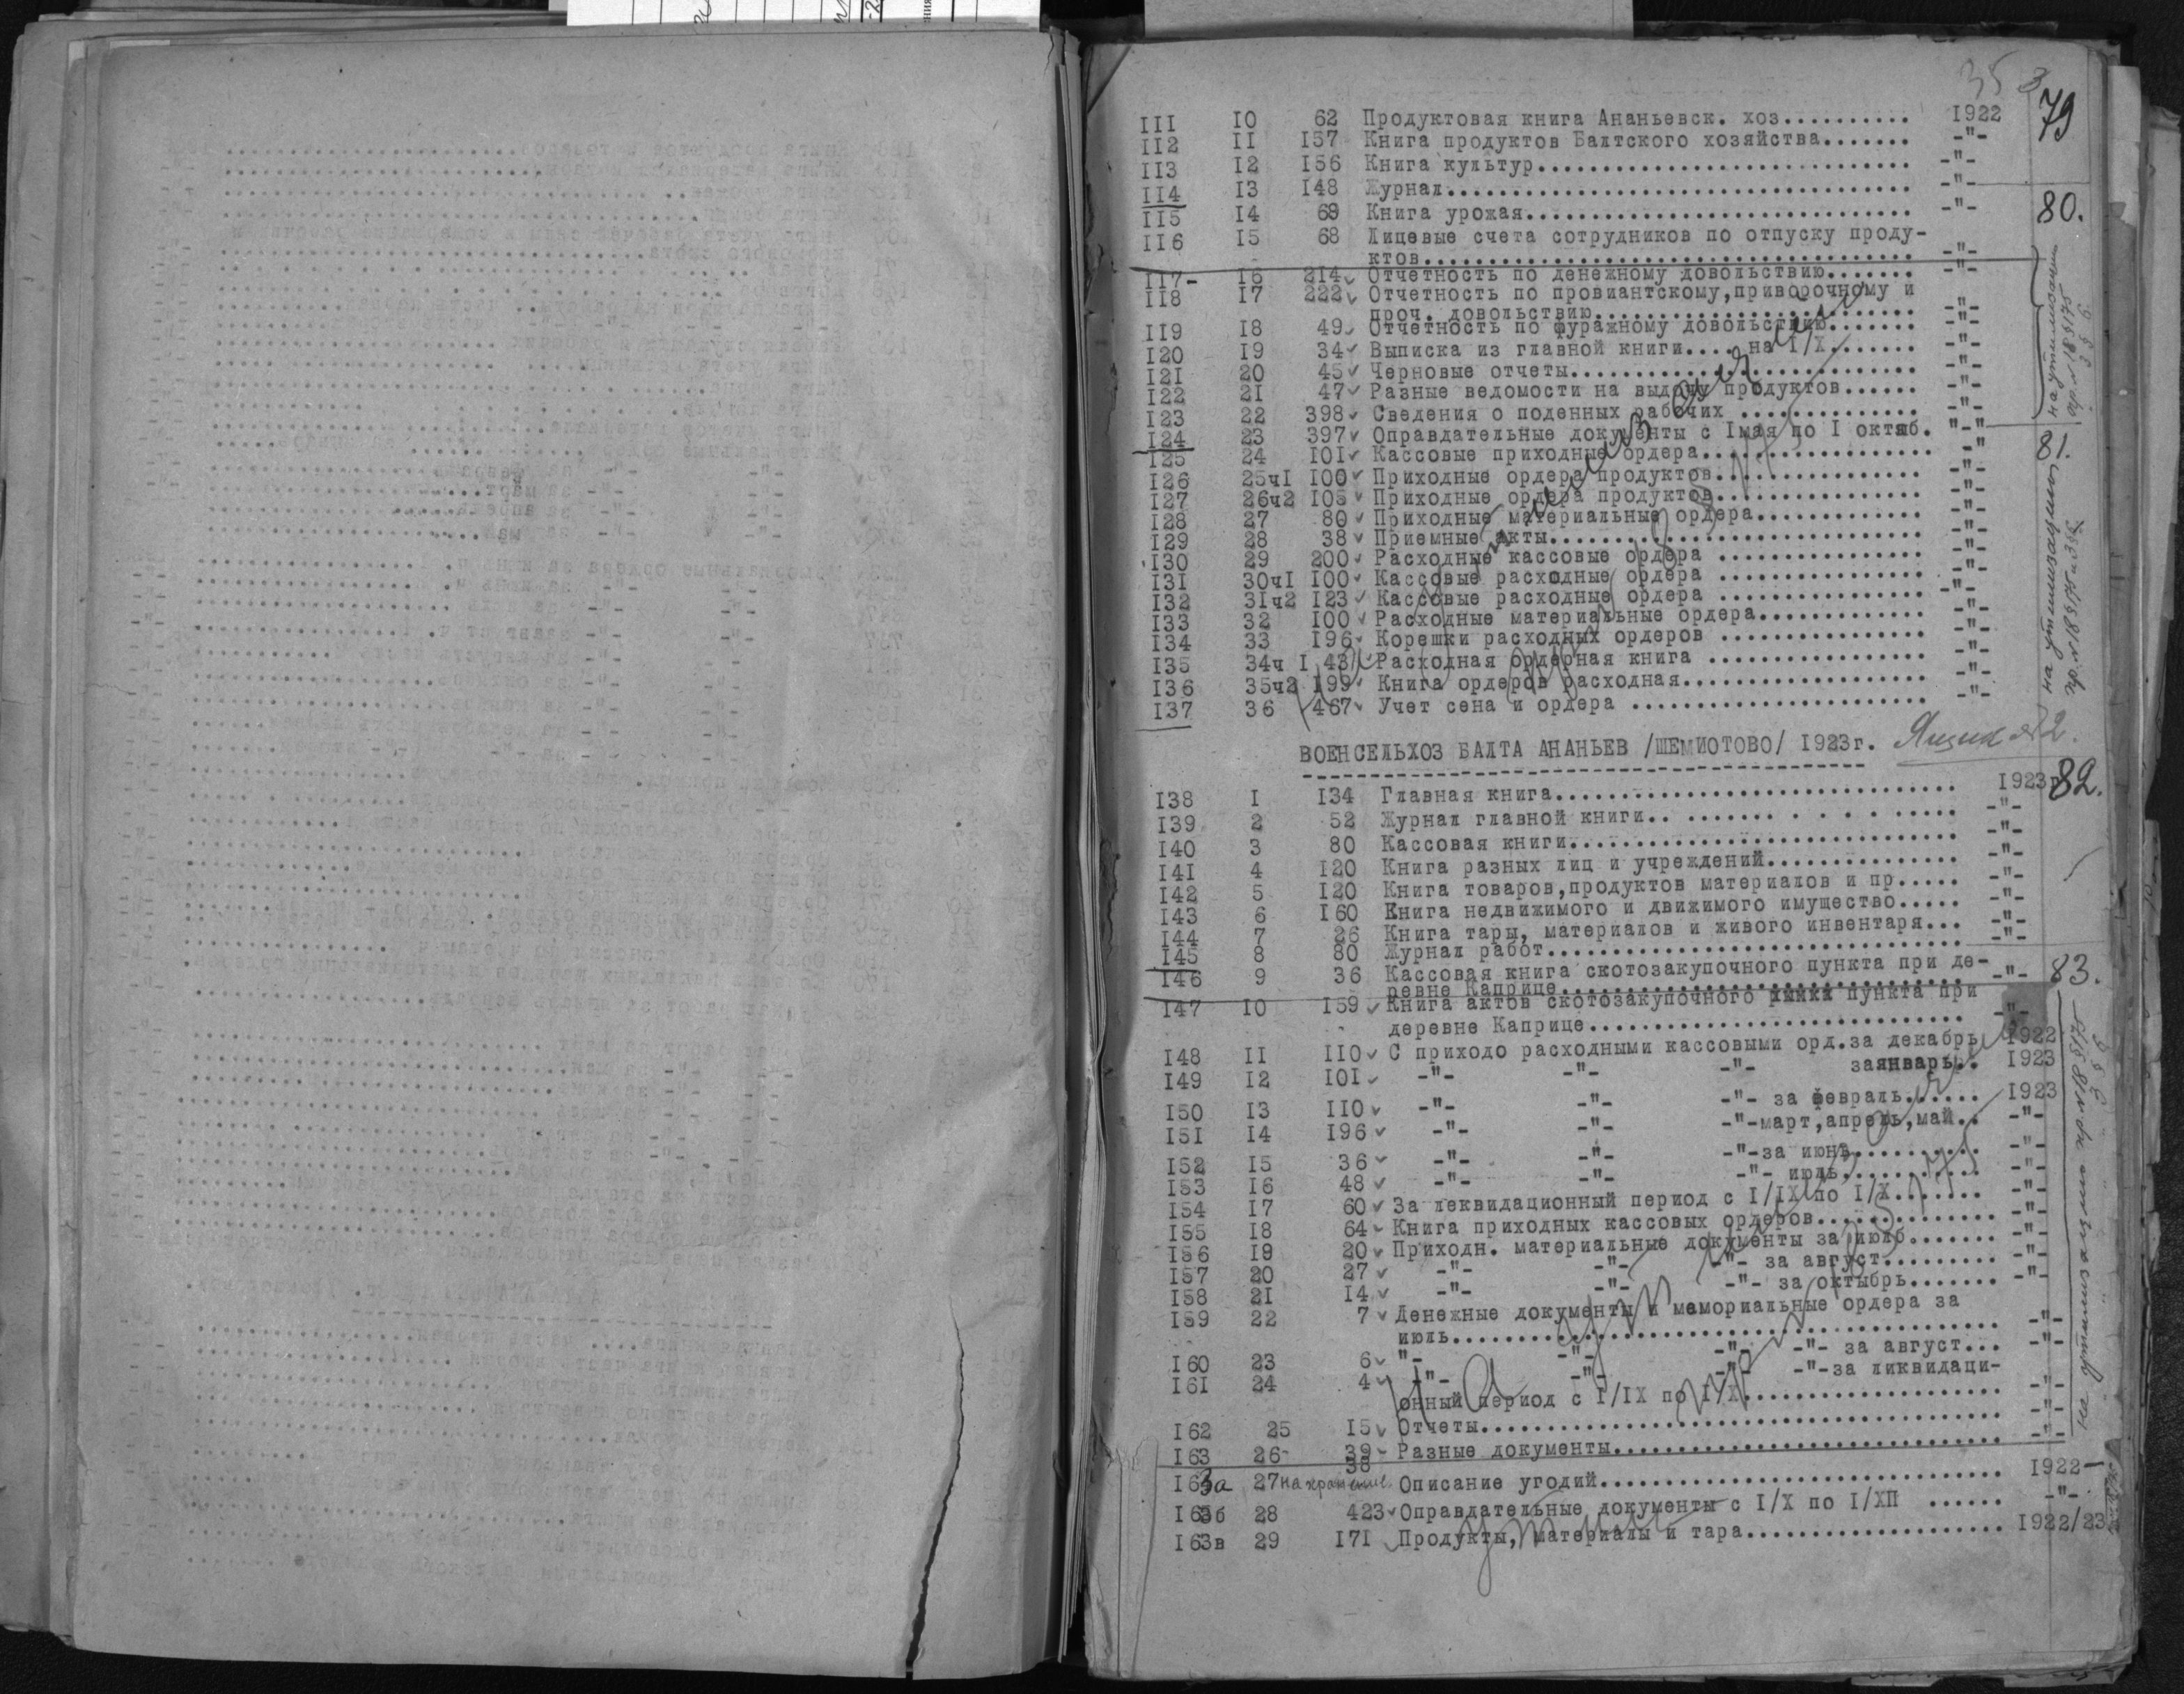 35 3
III 10 62 Продуктовая книга Ананьевск. хоз.......... 1922 79
II2 II I57 Книга продуктов Балтского хозяйства....... -"-
II3 I2 I56 Книга культур............................. -"-
II4 I3 I48 Журнал.................................... -"-
II5 I4 69 Книга урожая.............................. -"- 80.
II6 I5 68 Лицевые счета сотрудников по отпуску проду-
ктов...................................... -"-
II7- I6 214 Отчетность по денежному довольствию....... -"-
II8 I7 222 Отчетность по провиантскому,приворочному и
проч. довольствию......................... -"-
II9 I8 49 Отчетность по фуражному довольствию....... -"-
I20 I9 34 Выписка из главной книги.... на I/X....... -"-
I2I 20 45 Черновые отчеты........................... -"-
I22 2I 47 Разные ведомости на выдачу продуктов...... -"-
I23 22 398 Сведения о поденных рабочих .............. -"-
I24 23 397 Оправдательные документы с Iмая по I октяб. "-"
I25 24 I0I Кассовые приходные ордера.................. -" 81.
I26 25ч1 I00 Приходные ордера продуктов................ -"-
I27 26ч2 I05 Приходные ордера продуктов................ -"-
I28 27 80 Приходные материальные ордера............. -"-
I29 28 38 Приемные акты............................. -"-
I30 29 200 Расходные кассовые ордера ................ -"-
I3I 30чI I00 Кассовые расходные ордера ................ -"-
I32 3Iч2 I23 Кассовые расходные ордера ................ -"-
I33 32 I00 Расходные материальные ордера............. -"-
I34 33 I96 Корешки расходных ордеров ................ -"-
I35 34ч I 43 Расходная ордерная книга ................. -"-
I36 35ч2 I99 Книга ордеров расходная................... -"-
I37 36 467 Учет сена и ордера ....................... -"-
на утилизацию
пр.№18
на утилизацию
пр.№18
ВОЕНСЕЛЬХОЗ БАЛТА АНАНЬЕВ /ШЕМИОТОВО/ I923г. Ящик №2.
I38 I I34 Главная книга............................... I923г 82.
I39 2 52 Журнал главной книги.. ....... . . . . ..... -"-
I40 3 80 Кассовая книги.............................. -"-
I4I 4 I20 Книга разных лиц и учреждений............... -"-
I42 5 I20 Книга товаров,продуктов материалов и пр..... -"-
I43 6 I60 Книга недвижимого и движимого имущество..... -"-
I44 7 26 Книга тары, материалов и живого инвентаря... -"-
I45 8 80 Журнал работ................................ -"-
I46 9 36 Кассовая книга скотозакупочного пункта при де- -"- 83.
ревне Каприце...............................
I47 I0 I59 Книга актов скотозакупочного пункта при
деревне Каприце............................. -"-
I48 II II0 С приходо расходными кассовыми орд.за декабрь I922
I49 I2 I0I -"- -"- -"- заянварь.. I923
I50 I3 II0 -"- -"- -"- за февраль...... I923
I5I I4 I96 -"- -"- -"-март,апрель,май.. -"-
I52 I5 36 -"- -"- -"-за июнь........... -"-
I53 I6 48 -"- -"- -"- июль............ -"-
I54 I7 60 За леквидационный период с I/IX по I/X....... -"-
I55 I8 64 Книга приходных кассовых ордеров............. -"-
I56 I9 20 Приходн. материальные документы за июлб....... -"-
I57 20 27 -"- -"- -"- за август......... -"-
I58 2I I4 -"- -"- -"- за октыбрь....... -"-
I59 22 7 Денежные документы и мемориальные ордера за
июль......................................... -"-
I60 23 6 "- -"- -"- -"- за август... -"-
I6I 24 4 -"- -"- -"- -"-за ликвидаци-
онный период с I/IX по I/X................... -"-
I62 25 I5 Отчеты....................................... -"-
I63 26 39 Разные документы............................. -"-
на утилизацию пр.№18
38
I63а 27 на хранение Описание угодий.............................. I922-
I63б 28 423 Оправдательные документы с I/X по I/XП ...... -"-
I63в 29 I7I Продукты, материалы и тара................... I922/23